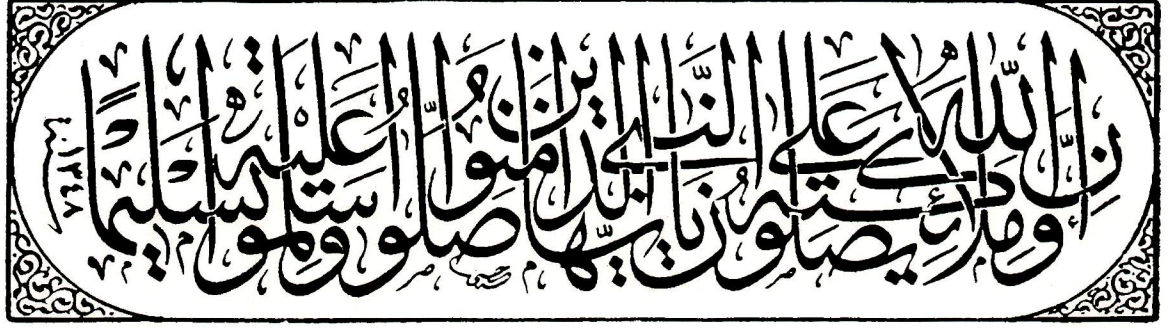 إن الله وملائكته يصلون على النبي يا أيها الذين آمنوا صلوا عليه وسلموا تسليما
سنة ١٣٤٨